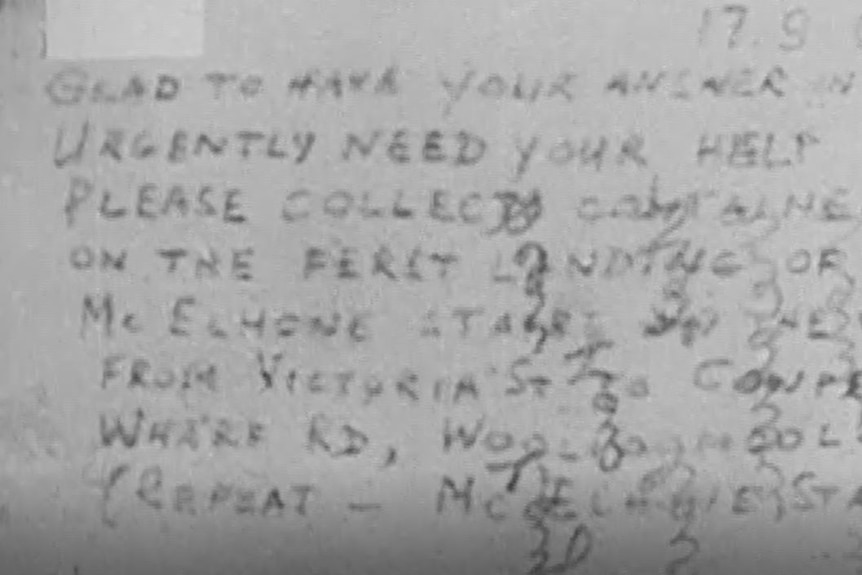 17.9
GLAD TO HAVE YOUR ANSWER IN
URGENTLY NEED YOUR HELP
PLEASE COLLECT CONTAINE
ON THE FERST LANDING OF
Mc ELHONE STARS THE
FROM VICTORIA ST TO COWPE
WHARF RD, WOOLLOOMOOL
(REPEAT - Mc ELHONE STA